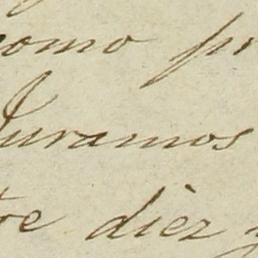 como
Juramos
diez